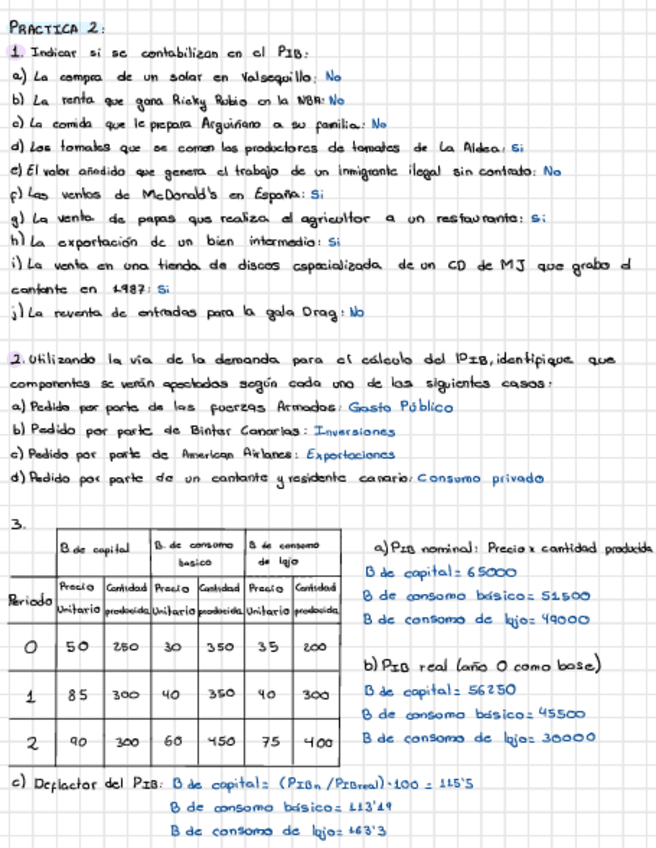 PRACTICA 2:
1. Indicar si se contabilizan en el PIB:
a) La compra de un solar en Valsequillo: No
b) La renta que gana Ricky Rubio en la NBA: No
c) La comida que le prepara Arguiñano a su familia: No
d) Los tomates que se comen los productores de tomates de La Aldea: Si
e) El valor añadido que genera el trabajo de un inmigrante ilegal sin contrato: No
f) Las ventas de McDonald's en España: Si
g) La venta de papas que realiza el agricultor a un restaurante: Si
h) La exportación de un bien intermedio: Si
i) La venta en una tienda de discos especializada de un CD de MJ que grabo el
cantante en 1987: Si
j) La reventa de entradas para la gala Drag: No
2. Utilizando la via de la demanda para el cálculo del PIB, identifique que
componentes se verán afectados según cada uno de los siguientes casos:
a) Pedido por parte de las fuerzas Armadas: Gasto Público
b) Pedido por parte de Binter Canarias: Inversiones
c) Pedido por parte de American Airlanes: Exportaciones
d) Pedido por parte de un cantante y residente canario: Consumo privado
3.
B de capital B. de consumo basico B de consumo de lujo
Periodo Precio Unitario Cantidad producida Precio Unitario Cantidad producida Precio Unitario Cantidad producida
0 50 250 30 350 35 200
1 85 300 40 350 40 300
2 90 300 60 450 75 400
a) PIB nominal: Precio x cantidad producida
B de capital = 65000
B de consumo básico = 51500
B de consumo de lujo = 49000
b) PIB real (año 0 como base)
B de capital = 56250
B de consumo básico = 45500
B de consumo de lujo = 30000
c) Deflactor del PIB: B de capital = (PIBn / PIBreal) · 100 = 115'5
B de consumo básico = 113'19
B de consumo de lujo = 163'3